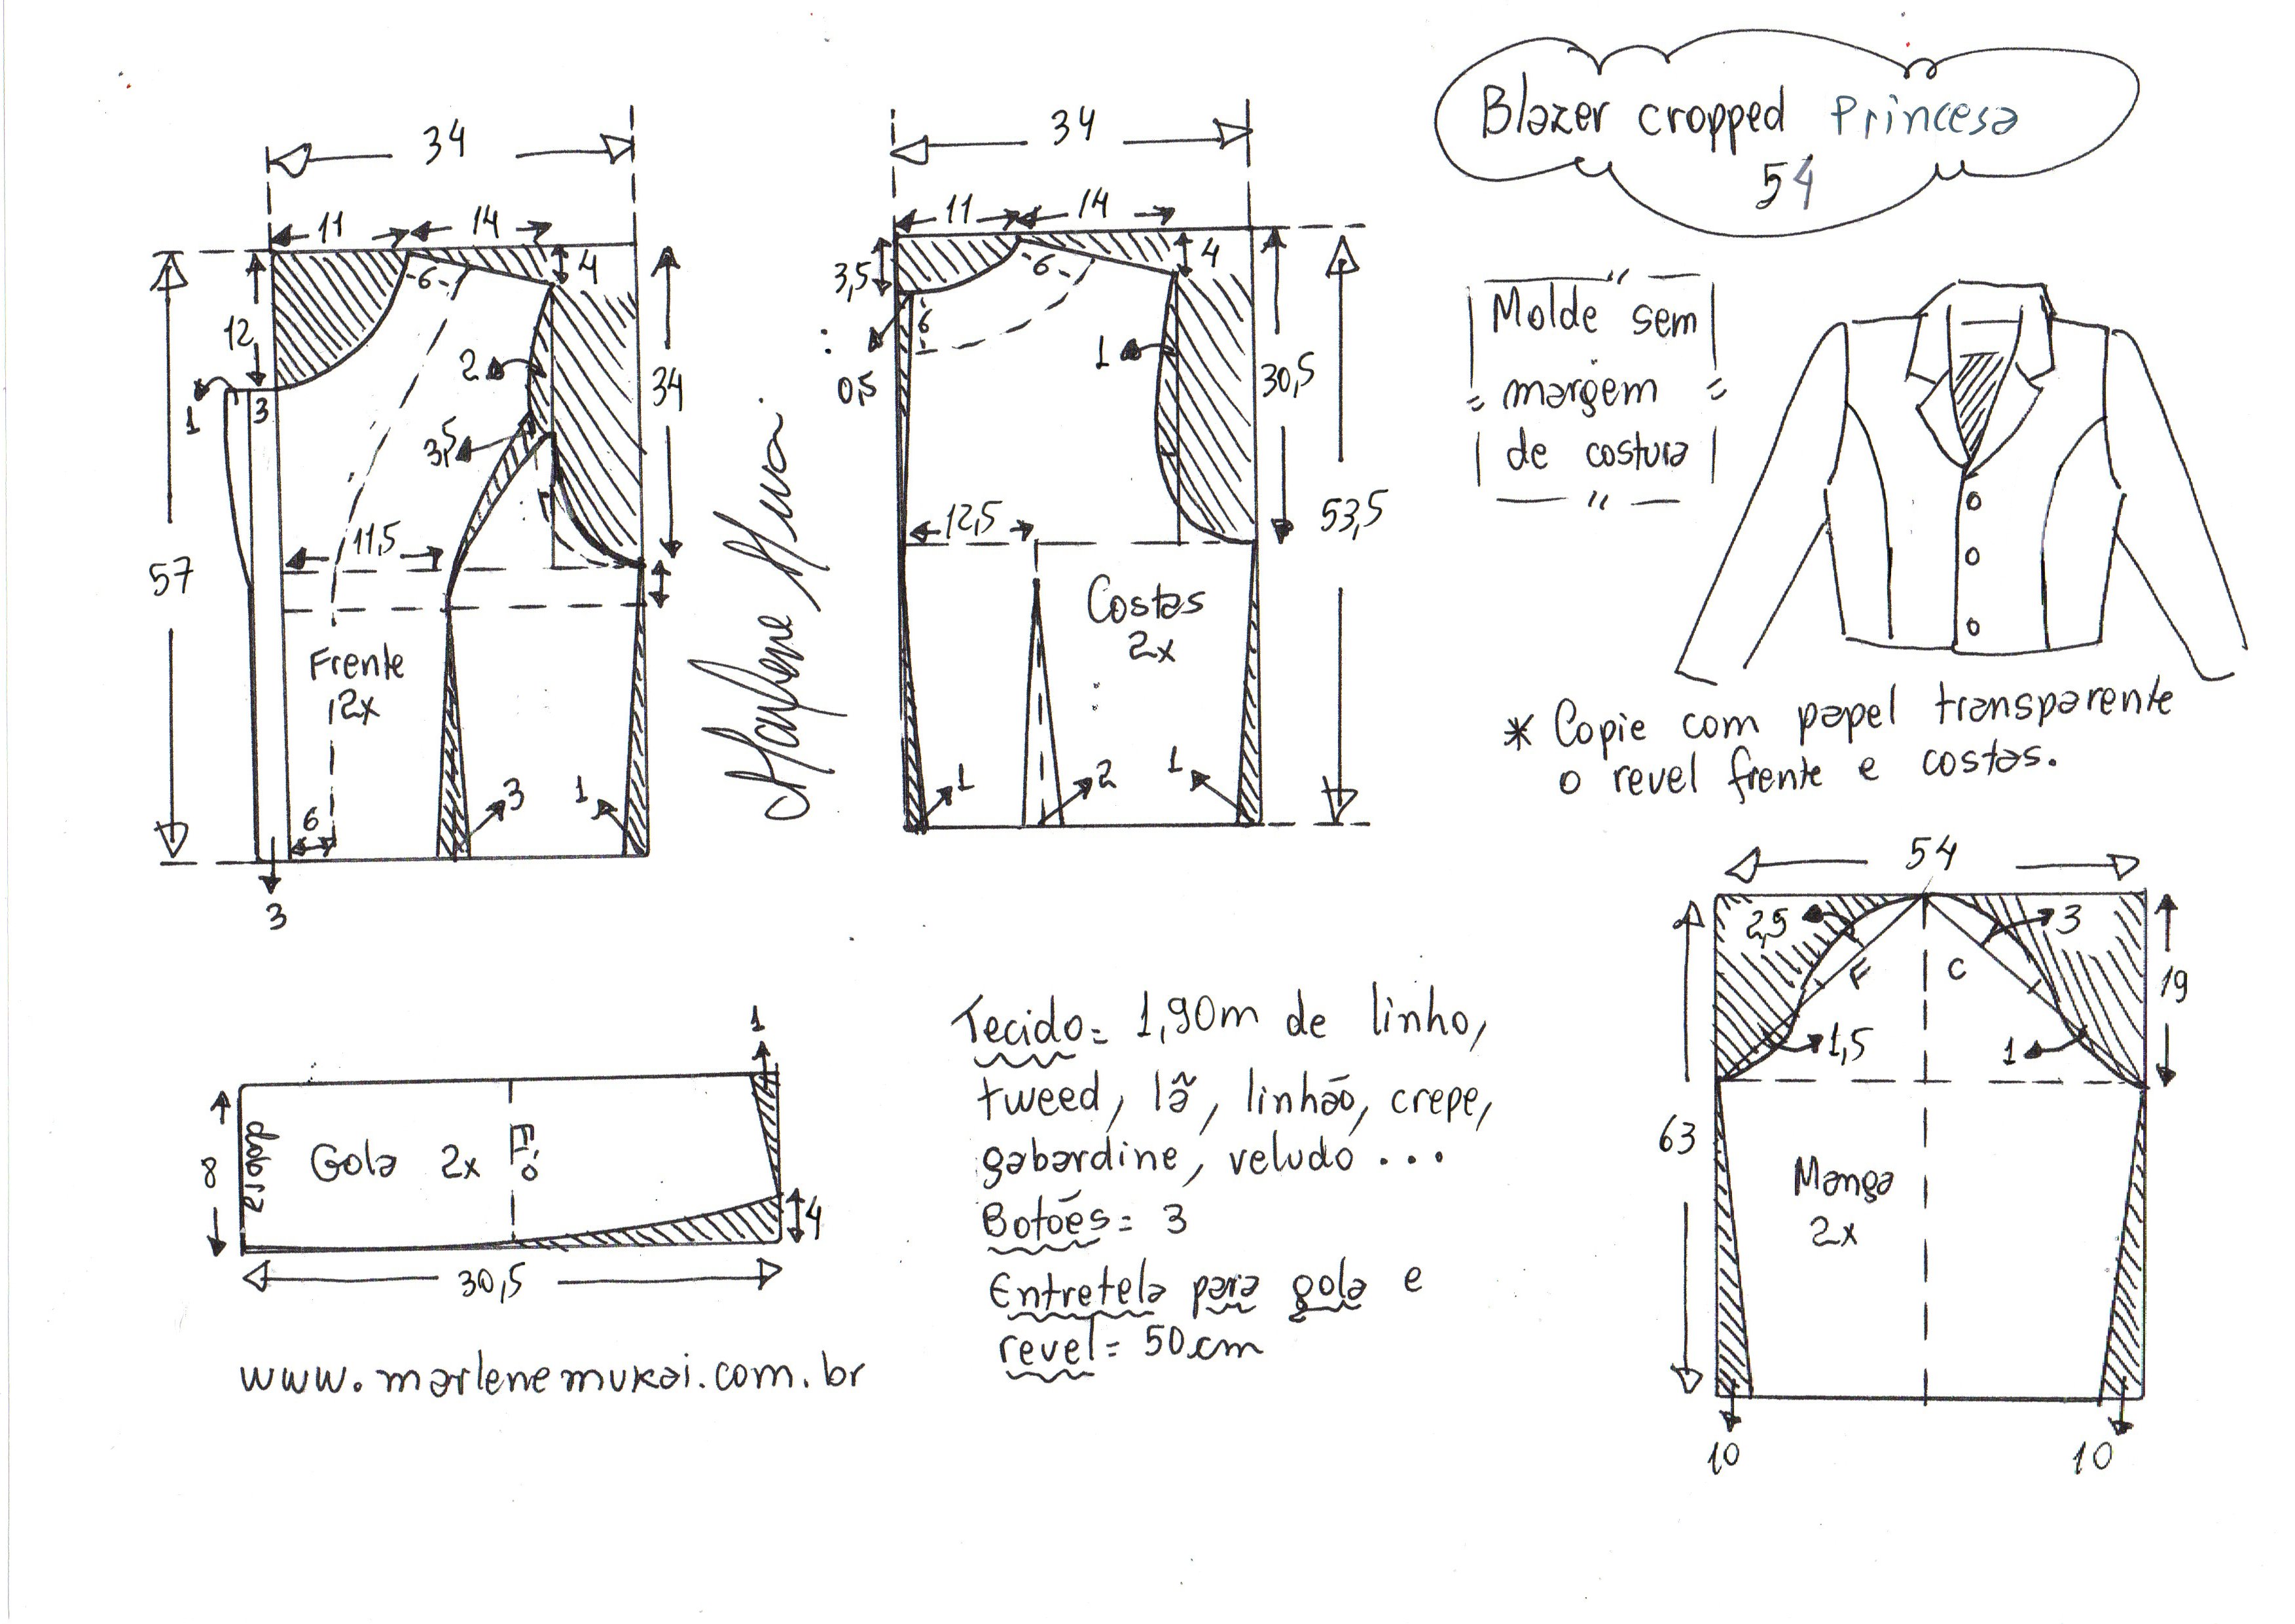 Blazer cropped Princesa
54
34
11
14
6
4
12
1
3
2
3,5
34
11,5
57
Frente
12x
6
3
1
3
Marlene Mukai
34
11
14
3,5
6
4
6
0,5
1
30,5
12,5
53,5
Costas
2x
1
2
1
Molde sem
margem
de costura
* Copie com papel transparente
o revel frente e costas.
1
8
dobra
Gola 2x
Fio
4
30,5
www.marlenemukai.com.br
Tecido= 1,90m de linho,
tweed, lã, linhão, crepe,
gabardine, veludo ...
Botões= 3
Entretela para gola e
revel= 50cm
54
2,5
3
F
C
19
1,5
1
63
Manga
2x
10
10